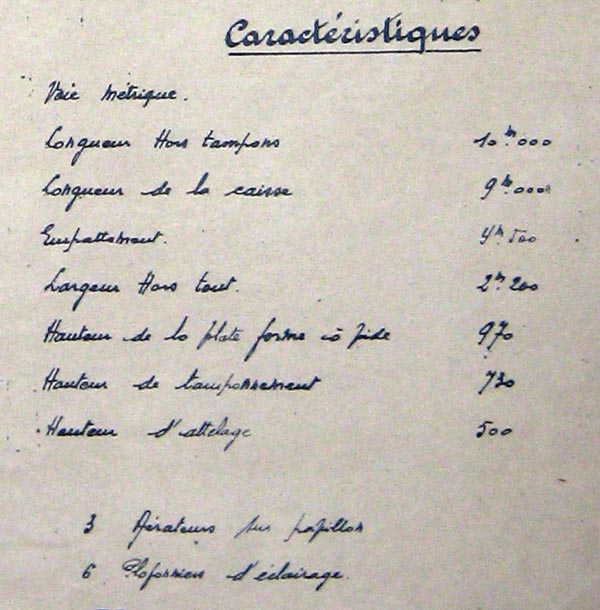 Caractéristiques
Voie métrique.
Longueur Hors tampons 10m.000
Longueur de la caisse 9m.000
Empattement. 4m.500
Largeur Hors tout. 2m.200
Hauteur de la plate forme à vide 970
Hauteur de tamponnement 730
Hauteur d'attelage 500
3 Aérateurs sur papillon
6 Plafonniers d'éclairage.